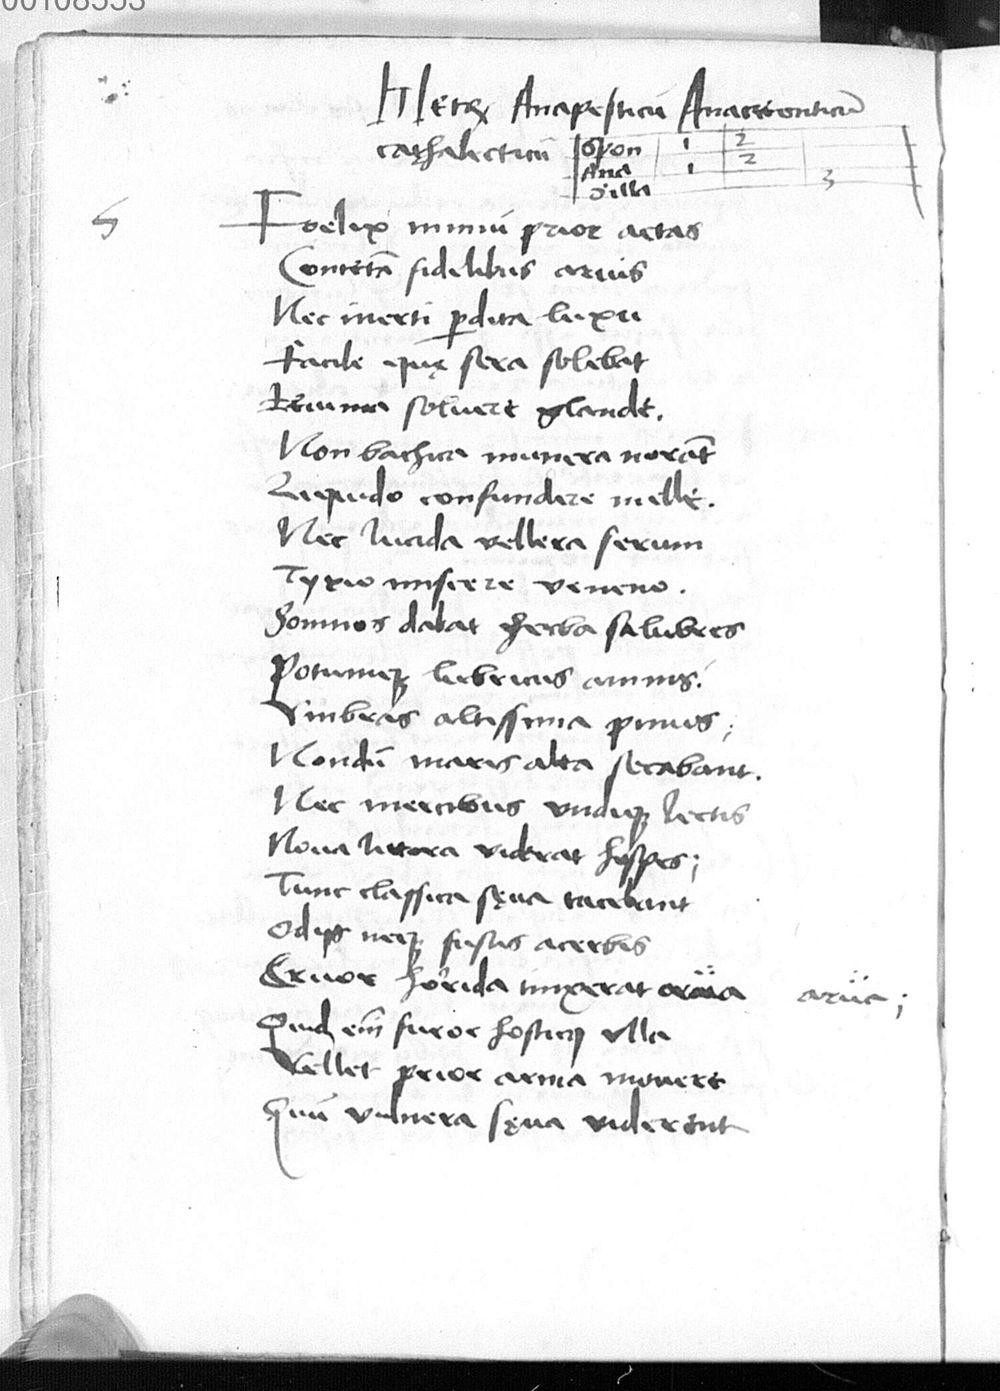 00108553
Metrũ Anapesticũ Anacreonticũ
cathalecticũ Spon 1 2
Ana 1 2
Silla 3
5 Foelix nimiũ prior aetas
Contẽta fidelibus arvis
Nec inerti pdita luxu
Facile quę sera solebat
Ieiunia solvere glande.
Non bachica munera norãt
Liquido confundere melle.
Nec lucida vellera serum
Tyrio miscere veneno.
Somnos dabat herba salubres
Potumqꝫ lubricus amnis.
Vmbras altissima pinus;
Nondũ maris alta secabant.
Nec mercibus undiqꝫ lectis
Nova littora viderat hospes;
Tunc classica sęva tacebant
Odiis neqꝫ fusus acerbis
Cruor horrida tinxerat arva arva;
Quid em̃ furor hosticꝰ ulla
Vellet prior arma movere
Quũ vulnera sęva viderent